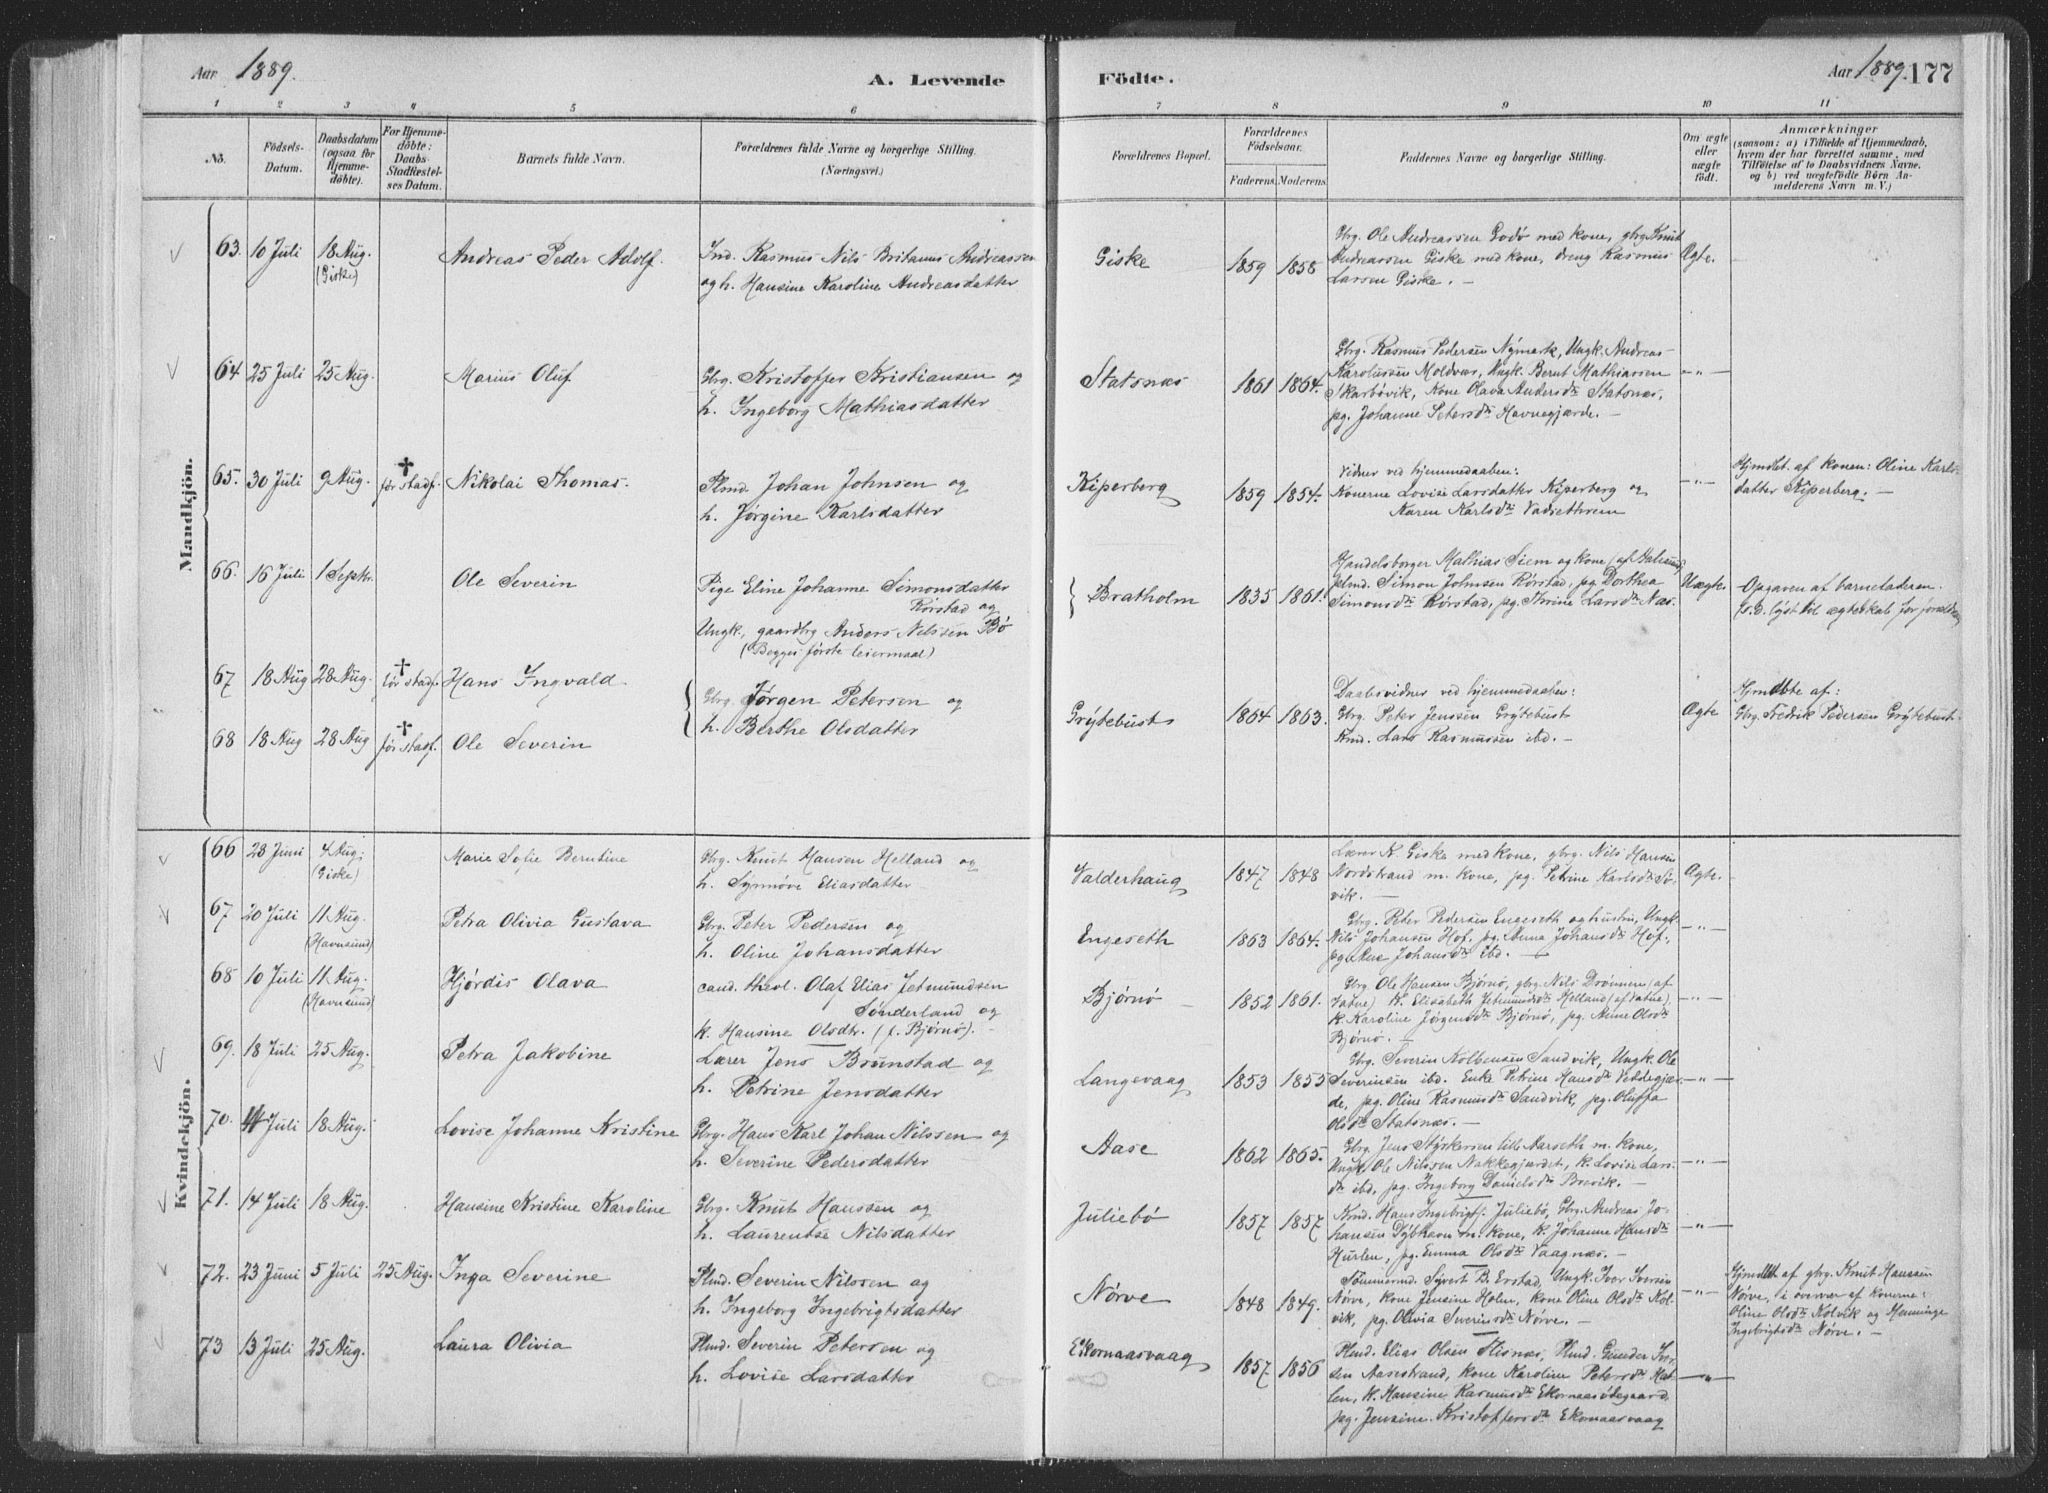 Aar 1889.
A. Levende
Födte.
Aar 1889. 177
1 2 3 4 5 6 7 8 9 10 11
No.
Födsels-
Datum.
Daabsdatum
(ogsaa for
Hjemme-
döbte).
For Hjemme-
döbte:
Daabs-
Stadfæstel-
ses Datum.
Barnets fulde Navn.
Forældrenes fulde Navne og borgerlige Stilling.
(Næringsvei.)
Forældrenes Bopæl.
Forældrenes
Födselsaar.
Faderens. Moderens.
Faddernes Navne og borgerlige Stilling.
Om ægte
eller
uægte
födt.
Anmærkninger
(saasom: a) i Tilfælde af Hjemmedaab,
hvem der har forrettet samme, med
Tilföielse af to Daabsvidners Navne,
og b) ved uægtefödte Börn An-
melderens Navn m. V.)
Mandkjön.
63. 10 Juli 18 Aug. (Giske) Andreas Peder Adolf.
Ind. Rasmus Nils Britanus Andreassen
og h. Hansine Karoline Andreasdatter
Giske 1859 1858
Gbrg. Ole Andreassen Godø med kone, gbrg. Knut
Andreassen Giske med kone, dreng Rasmus
Larsen Giske. —
Ægte.
64 25 Juli 25 Aug. Marius Oluf
Gbrg. Kristoffer Kristiansen og
h. Ingeborg Mathiasdatter
Statsnæs 1861 1864.
Gbrg. Rasmus Pedersen Nymark, Ungk. Andreas
Karolussen Moldvær, Ungk. Bernt Mathiassen
Skarbøvik, Kone Olava Andersdtr Statsnæs,
pg. Johanne Petersdtr Havnegjærde. —
— " —
65. 30 Juli 9 Aug. † før stadf. Nikolai Thomas.
Plmd. Johan Johnsen og
h. Jørgine Karlsdatter
Kiperberg 1859 1854.
Vidner ved hjemmedaaben:
Konerne Lovise Larsdatter Kiperberg og
Karen Karlsdtr
— " —
Hjmdbt. af konen: Oline Karls-
datter Kiperberg. —
66. 16 Juli 1 Septbr. Ole Severin
Pige Eline Johanne Simonsdatter
Rørstad og
Ungk., gaardbrg Anders Nilssen Bø
(Begges første leiermaal)
} Bratholm 1835 1861.
Handelsborger Mathias Siem og kone (af Aalesund)
plmd. Simon Johnsen Rørstad, pg. Dorthea
Simonsdtr Rørstad, pg. Thrine Larsdtr Næs.
Uægte.
Opgaven af barnefaderen.
lyst til ægteskab for forældrene
67 18 Aug 28 Aug. † før stadf. Hans Ingvald
68 18 Aug 28 Aug † før stadf. Ole Severin
{ Gbrg. Jørgen Petersen og
h. Berthe Olsdatter
Grytebust 1864 1863.
Daabsvidner ved hjemmedaaben:
Gbrg. Peter Jenssen Grytebust
Kmd. Lars Rasmussen ibd. —
Ægte
Hjmdbte af:
Gbrg. Fredrik Pedersen Grytebust.
Kvindekjön.
66 28 Juni 4 Aug. (Giske) Marie Sofie Berntine
Gbrg. Knut Hansen Helland og
h. Synnøve Eliasdatter
Valderhaug 1847 1848
Lærer K. Giske med kone, gbrg. Nils Hansen
Nordstrand m. kone, pg. Petrine Karlsdtr Sø-
vik. —
Ægte.
67 20 Juli 11 Aug. (Havnsund) Petra Olivia Gustava
Gbrg. Peter Pedersen og
h. Oline Johansdatter
Engeseth 1863 1864.
Gbrg. Peter Pedersen Engeseth og hustru, Ungk.
Nils Johansen Hof, pg. Anna Johansdtr Hof,
pg. Ane Johansdtr ibd. —
— " —
68 10 Juli 11 Aug. (Havnsund) Hjørdis Olava
cand. theol. Olaf Elias Jetmundsen
Sønderland og
k. Hansine Olsdtr. (f. Bjørnø).
Bjørnø 1852 1861.
Gbrg. Ole Hansen Bjørnø, gbrg. Nils Drønnen (af
Vatne) K. Elisabeth Jetmundsdtr Helland (af Vatne),
k. Karoline Jørgensdtr Bjørnø, pg. Anne Olsdtr
Bjørnø. —
— " —
69. 18 Juli 25 Aug. Petra Jakobine
Lærer Jens Brunstad og
h. Petrine Jensdatter
Langevaag 1853 1855
Gbrg. Severin Kolbensen Sandvik, Ungk. Ole
Severinsen ibd. Enke Petrine Hansdtr Veddegjær-
de, pg. Oline Rasmusdtr Sandvik, pg. Oluffa
Olsdtr Statsnæs. —
— " —
70. Juli 18 Aug. Lovise Johanne Kristine
Gbrg. Hans Karl Johan Nilssen og
h. Severine Pedersdatter
Aase 1862 1865.
Gbrg. Jens Styrkersen lille Aarseth m. kone,
Ungk. Ole Nilssen Nakkegjærdet, k. Lovise Lars-
dtr ibd, pg. Ingeborg Danielsdtr Brevik. —
— " —
71. 14 Juli 18 Aug. Hansine Kristine Karoline
Gbrg. Knut Hanssen og
h. Laurentse Nilsdatter
Juliebø 1857 1857
Kmd. Hans Ingebrigts. Juliebø, Gbrg. Andreas Jo-
hansen Dybhavn m. kone, k. Johanne Hansdtr
Hurlen, pg. Emma Olsdtr Vaagnæs. —
— " —
72. 23 Juni 5 Juli 25 Aug. Inga Severine
Plmd. Severin Nilssen og
h. Ingeborg Ingebrigtsdatter
Nørve 1848 1849.
Tømmermd. Syvert B. Erstad, Ungk. Iver Iversen
Nørve, kone Jensine Holen, kone Oline Olsdtr Kol-
vik, pg. Olivia Severinsdtr Nørve. —
— " —
Hjmdbt af gbrg. Knut Hanssen
Nørve, i overvær af konerne:
Oline Olsdtr Kolvik og Henninge
Ingebrigtsdtr Nørve. —
73 13 Juli 25 Aug. Laura Olivia
Plmd. Severin Petersen og
h. Lovise Larsdatter
Ekornaasvaag 1857. 1856
Plmd. Elias Olsen Flisnæs, Plmd. Gunder Iver-
sen Aasestrand, kone Karoline Petersdtr
k. Hansine Rasmusdtr Ekornaasødegaard,
pg. Jensine Kristoffersdtr Ekornaasvaag
— " —